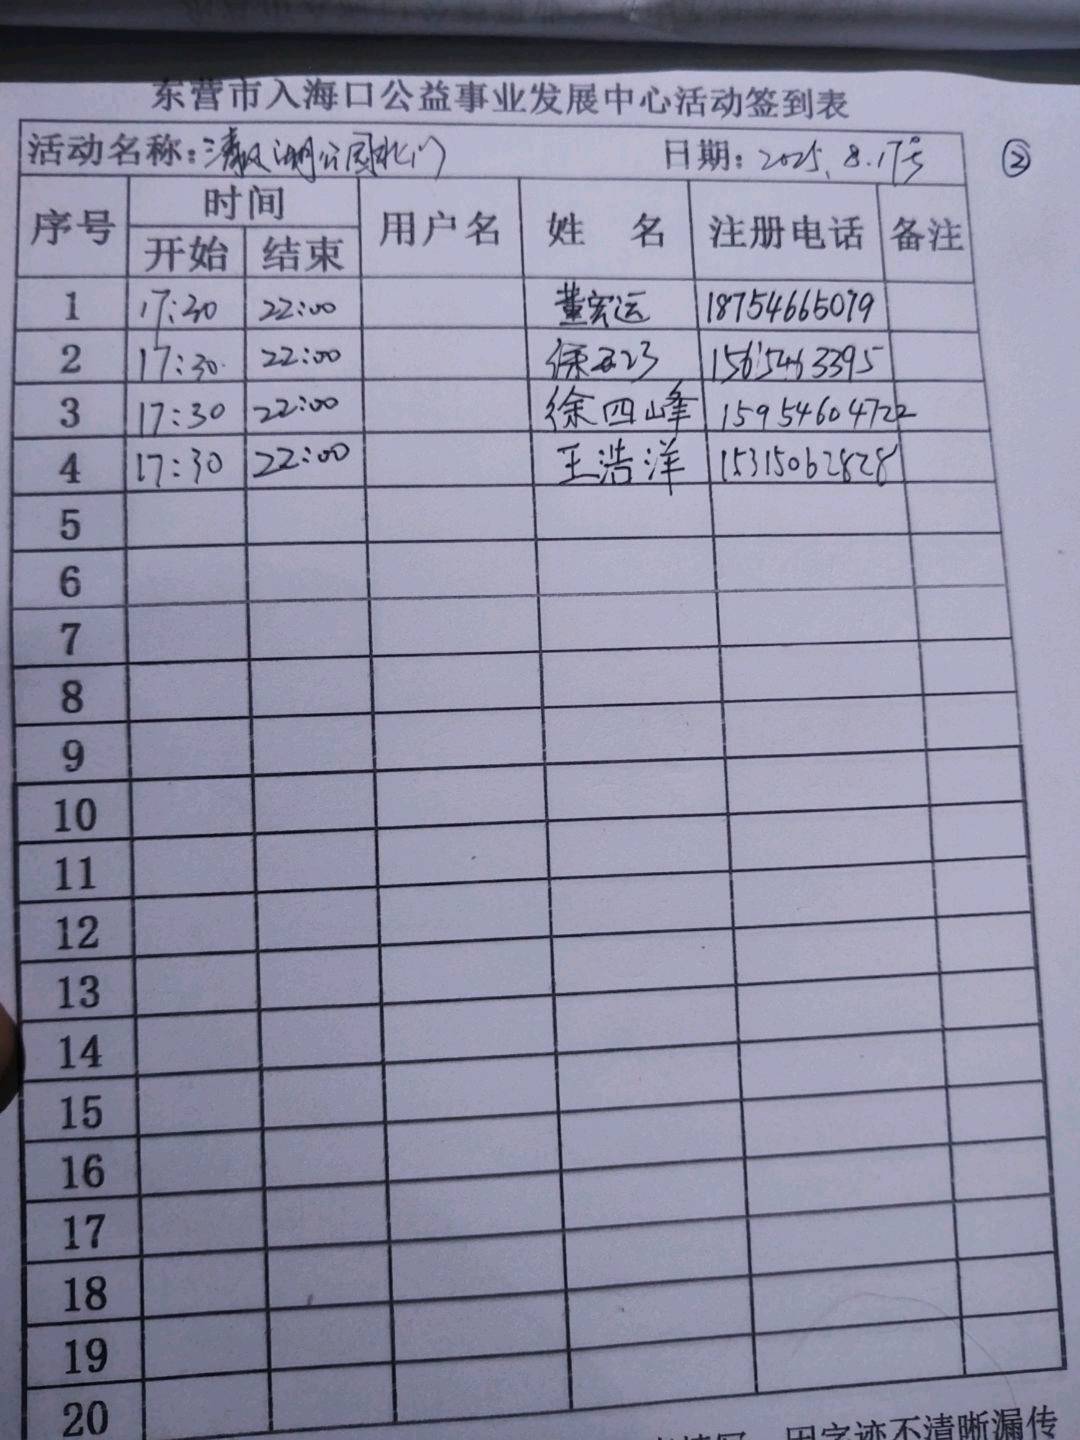 东营市入海口公益事业发展中心活动签到表
活动名称：清风湖公园北门 日期：2025.8.17号 ②
序号 时间 用户名 姓 名 注册电话 备注
开始 结束
1 17:30 22:00 董宏运 18754665079
2 17:30 22:00 徐 15615463395
3 17:30 22:00 徐四峰 15954604722
4 17:30 22:00 王浩洋 15315062828
5
6
7
8
9
10
11
12
13
14
15
16
17
18
19
20
因字迹不清晰漏传